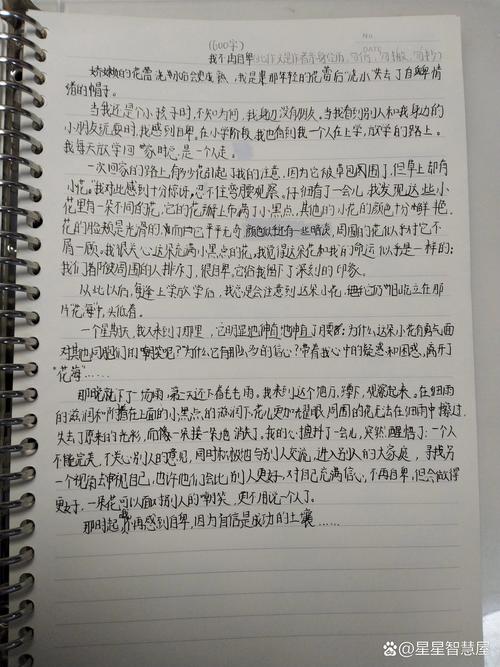 (600字)
No.
DATE
我不再自卑
娇嫩的花蕾 洗沐后会更成熟，我是東那年轻的花蕾后"洗沐"失去了自卑情
绪的帽子。
当我还是个小孩子时，不知为何，我身边没有朋友。当我看到别人和我身边的
小朋友玩耍时，我感到自卑。在小学阶段，我也看到我一个人在上学，放学的路上。
我每天放学回家时总是一个人走。
一次回家的路上，有的小花引起了我的注意，因为它被草包围了，但草上都有
小花。我对此感到十分惊讶，忍不住弯腰观察。仔细看了一会儿，我发现这些小
花里有一朵不同的花，它的花瓣上布满了小黑点，其他的小花的颜色十分鲜艳，
花的脸颊是光滑的，黄而它平平无奇，颜色似还有一些暗淡，周围的花似乎对它不
屑一顾。我很关心这朵充满小黑点的花，我觉得这朵花和我的命运似乎是一样的；
我们都那被周围的人排斥了，很自卑，它给我留下了深刻的印象。
从此以后，每逢上学放学后，我总是会注意到这朵小花，它仍"旧屹立在那
片"花海"，头低着。
一个星期天，我又来到了那里，它明显地伸直地伸直了月要；为什么这朵小花有勇气面
对其他同胞们的"嘲笑吧？为什么它有那么多的信心？带着我心中的疑惑和困惑，离开了
"花海"......
那晚就下了一场雨，第二天还下着毛毛雨。我来到这个地方，蹲下，观察起来。在细雨
的滋润和附着在上面的小黑点，的滋润下花儿更加光耀眼，周围的花无法在细雨中
失去了原来的光彩，而像一朵接一朵地消失了。我的心颤抖了一会儿，突然醒悟了：一个人
不能完美，不关心别人的意见，同时积极地与别人交流，进入别人的大家庭，寻找另
一个视角去审视自己，也许他们会比别人更好，对自己充满信心，不再自卑，但会做得
更好，一朵花可以面对别人的嘲笑，更不用说一个人了。
那时起我不再感到自卑，因为自信是成功的土壤......
@星星智慧屋